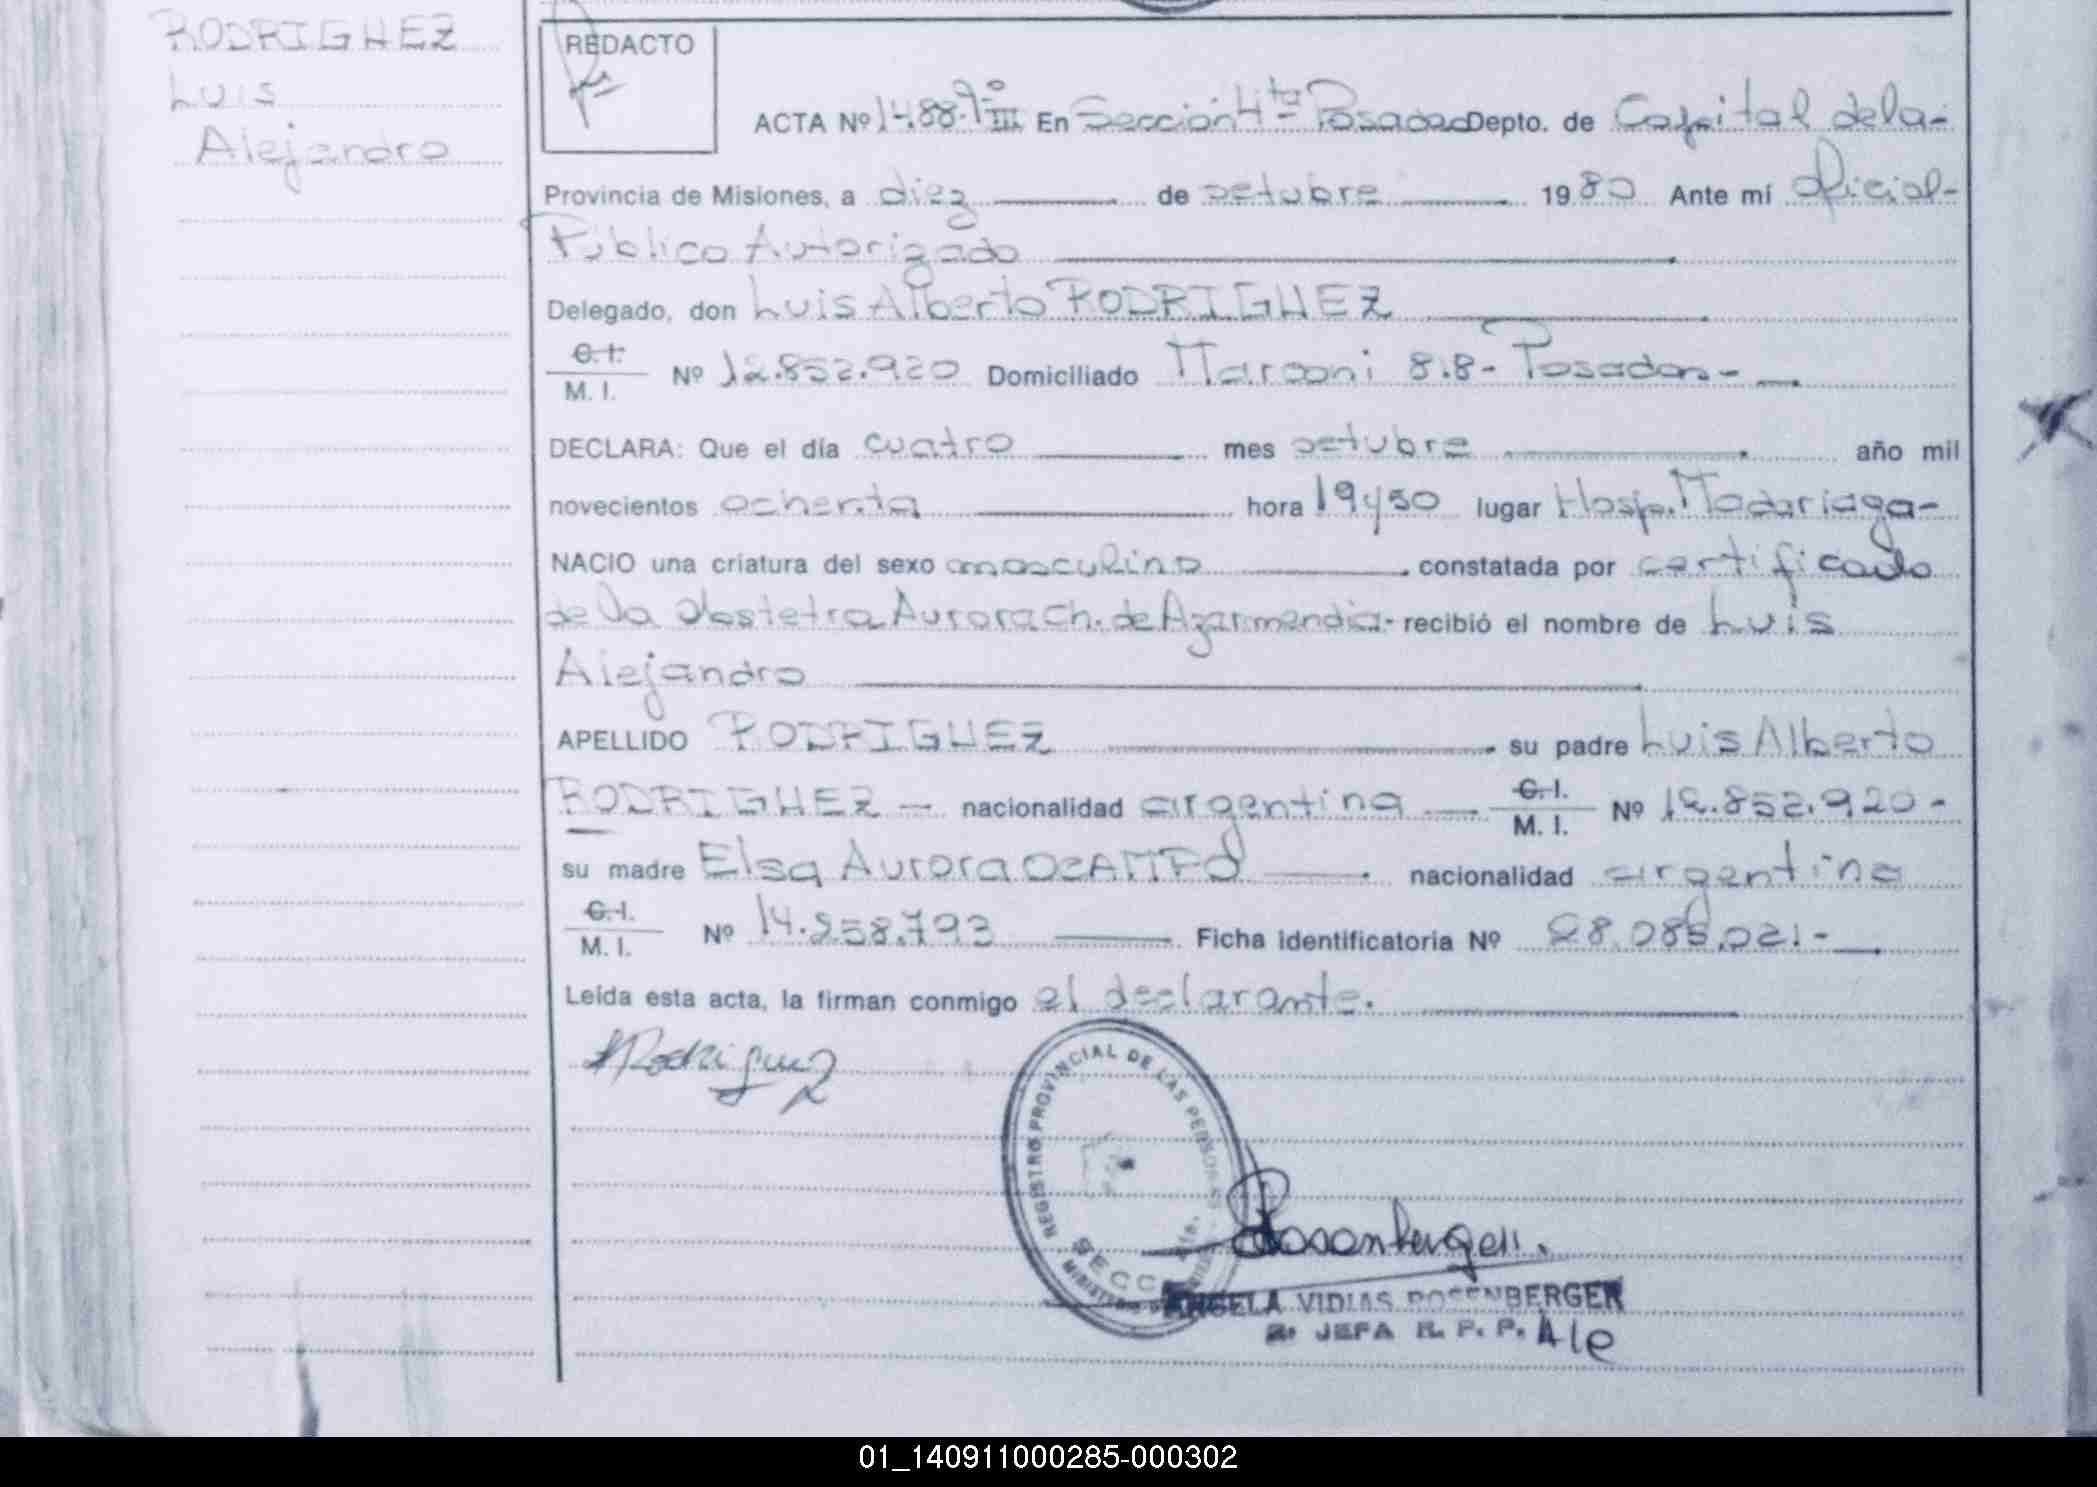 RODRIGUEZ
Luis
Alejandro
REDACTO
ACTA Nº 1.4.88.9 Tº III En Sección 4ta Posadas Depto. de Capital de la-
Provincia de Misiones, a diez de octubre 1980 Ante mí Oficial-
Público Autorizado
Delegado, don Luis Alberto RODRIGUEZ
C. I.
M. I. Nº 12.852.920 Domiciliado Marconi 8.8- Posadas-
DECLARA: Que el día cuatro mes octubre año mil
novecientos ochenta hora 19y50 lugar Hosp. Madariaga-
NACIO una criatura del sexo masculino constatada por certificado
de la Obstetra Aurora Ch. de Azarmendia- recibió el nombre de Luis
Alejandro
APELLIDO RODRIGUEZ su padre Luis Alberto
RODRIGUEZ nacionalidad argentina C. I.
M. I. Nº 12.852.920-
su madre Elsa Aurora OCAMPO nacionalidad argentina
C. I.
M. I. Nº 14.258.793 Ficha identificatoria Nº 28.085.021.-
Leída esta acta, la firman conmigo el declarante.
Rodriguez
REGISTRO PROVINCIAL DE LAS PERSONAS
SECC
Rosenberger.
ANGELA VIDIAS ROSENBERGER
2ª JEFA R. P. P. A/c
01_140911000285-000302